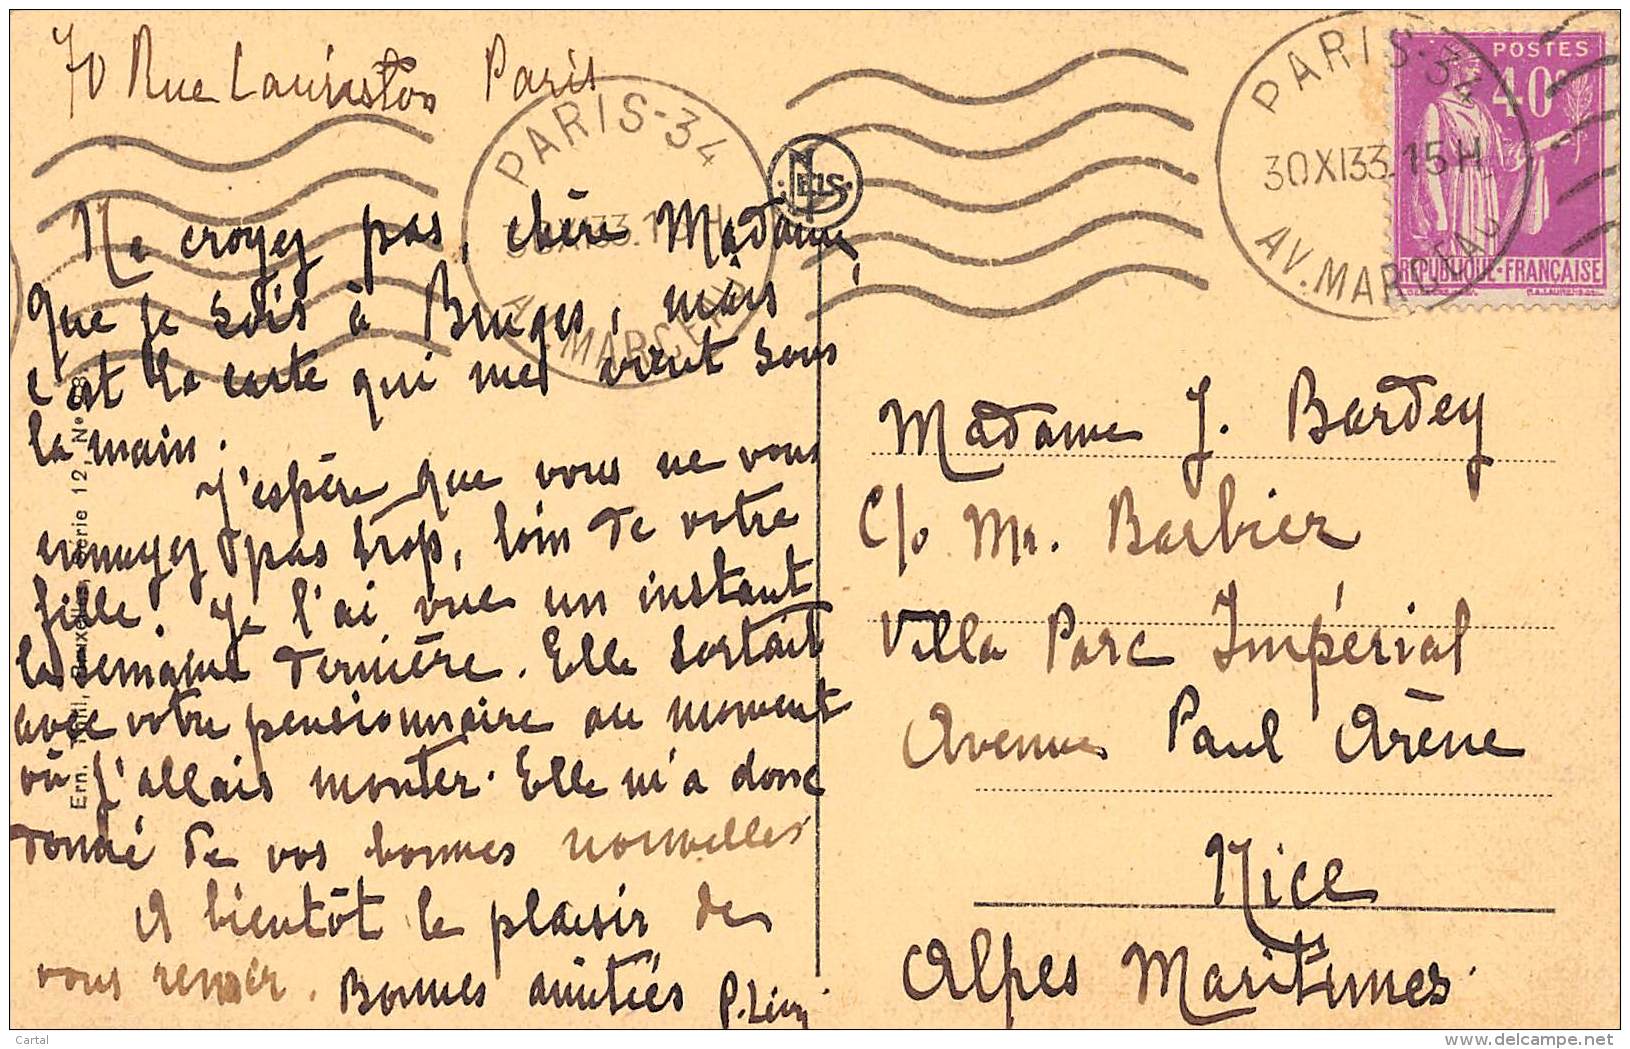 70 Rue Lauriston Paris
Ne croyez pas, chère Madame,
que je sois à Bruges, mais
c'est la carte qui me vient sous
la main.
J'espère que vous ne vous
ennuyez pas trop, loin de votre
fille. Je l'ai vue un instant
la semaine dernière. Elle sortait
avec votre pensionnaire au moment
où j'allais monter. Elle m'a donc
donné de vos bonnes nouvelles
A bientôt le plaisir de
vous revoir. Bonnes amitiés P. Lévy
PARIS-34
30 XI 33 15H
AV. MARCEAU
NELS
Ern. Thill, Bruxelles, Série 12, No
PARIS-34
30 XI 33 15H
AV. MARCEAU
POSTES
40c
REPUBLIQUE-FRANÇAISE
Madame J. Bardey
C/o Mr. Barbier
Villa Parc Impérial
Avenue Paul Arène
Nice
Alpes Maritimes.
Cartal
delcampe.net